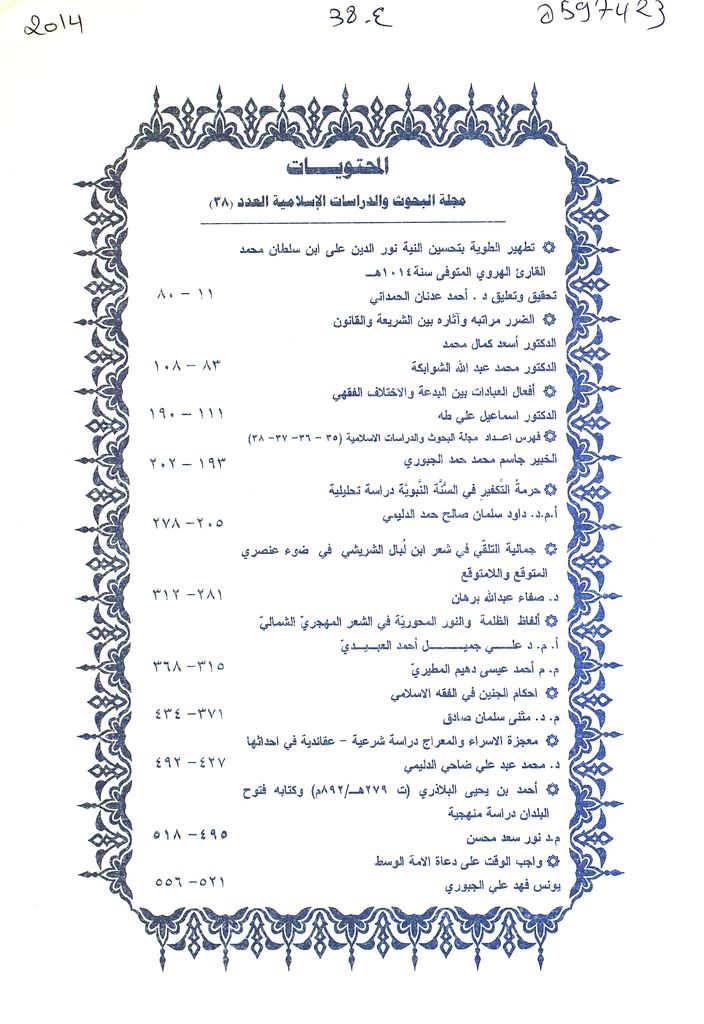 2014
38-ع
a597423
المحتويــات
مجلة البحوث والدراسات الإسلامية العدد (٣٨)
تطهير الطوية بتحسين النية نور الدين على ابن سلطان محمد
القارئ الهروي المتوفى سنة ١٠١٤هــ
تحقيق وتعليق د . أحمد عدنان الحمداني ١١ – ٨٠
الضرر مراتبه وآثاره بين الشريعة والقانون
الدكتور أسعد كمال محمد
الدكتور محمد عبد الله الشوابكة ٨٣ – ١٠٨
أفعال العبادات بين البدعة والاختلاف الفقهي
الدكتور اسماعيل علي طه ١١١ – ١٩٠
فهرس اعــداد مجلة البحوث والدراسات الاسلامية (٣٥ – ٣٦- ٣٧- ٣٨)
الخبير جاسم محمد حمد الجبوري ١٩٣ – ٢٠٢
حرمةُ التَّكفيرِ في السُّنَّة النَّبويَّة دراسة تحليلية
أ.م.د. داود سلمان صالح حمد الدليمي ٢٠٥– ٢٧٨
جمالية التلقّي في شعر ابن لُبال الشريشي في ضوء عنصري
المتوقع واللامتوقع
د. صفاء عبدالله برهان ٢٨١– ٣١٢
ألفاظ الظلمة والنور المحوريّة في الشعر المهجريّ الشماليّ
أ. م. د علــــي جميـــــــل أحمد العبـــيــديّ
م. م أحمد عيسى دهيم المطيريّ ٣١٥– ٣٦٨
احكام الجنين في الفقه الاسلامي
م. د. مثنى سلمان صادق ٣٧١– ٤٣٤
معجزة الاسراء والمعراج دراسة شرعية – عقائدية في احداثها
د. محمد عبد علي ضاحي الدليمي ٤٢٧– ٤٩٢
أحمد بن يحيى البلاذري (ت ٢٧٩هــ/٨٩٢م) وكتابه فتوح
البلدان دراسة منهجية
م.د نور سعد محسن ٤٩٥– ٥١٨
واجب الوقت على دعاة الامة الوسط
يونس فهد علي الجبوري ٥٢١– ٥٥٦